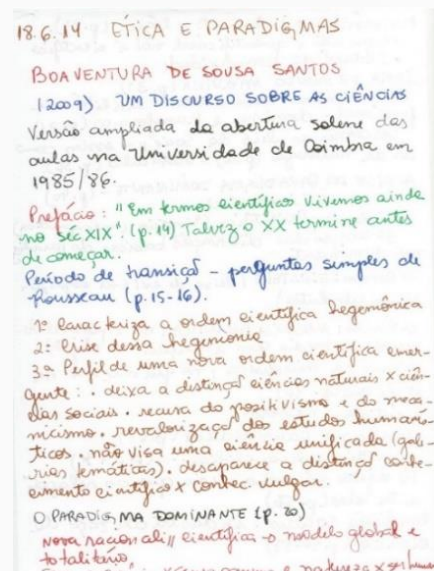 18.6.14 ÉTICA E PARADIGMAS
BOAVENTURA DE SOUSA SANTOS
(2009) UM DISCURSO SOBRE AS CIÊNCIAS
Versão ampliada da abertura solene das
aulas na Universidade de Coimbra em
1985/86.
Prefácio: "Em termos científicos vivemos ainda
no séc XIX". (p.14) Talvez o XX termine antes
de começar.
Período de transiçaõ - perguntas simples de
Rousseau (p.15-16).
1º Caracteriza a ordem científica hegemônica
2: Crise dessa hegemonia
3ª Perfil de uma nova ordem científica emer-
gente: . deixa a distinçaõ ciências naturais x ciên-
cias sociais . recusa do positivismo e do meca-
nicismo . revalorizaçaõ dos estudos humanís-
ticos . não visa uma ciência unificada (gale-
rias temáticas) . desaparece a distinçaõ conhe-
cimento científico x conhec. vulgar.
O PARADIGMA DOMINANTE (p. 20)
Nova racionali// científica → modelo global e
totalitário
natureza x ser humano